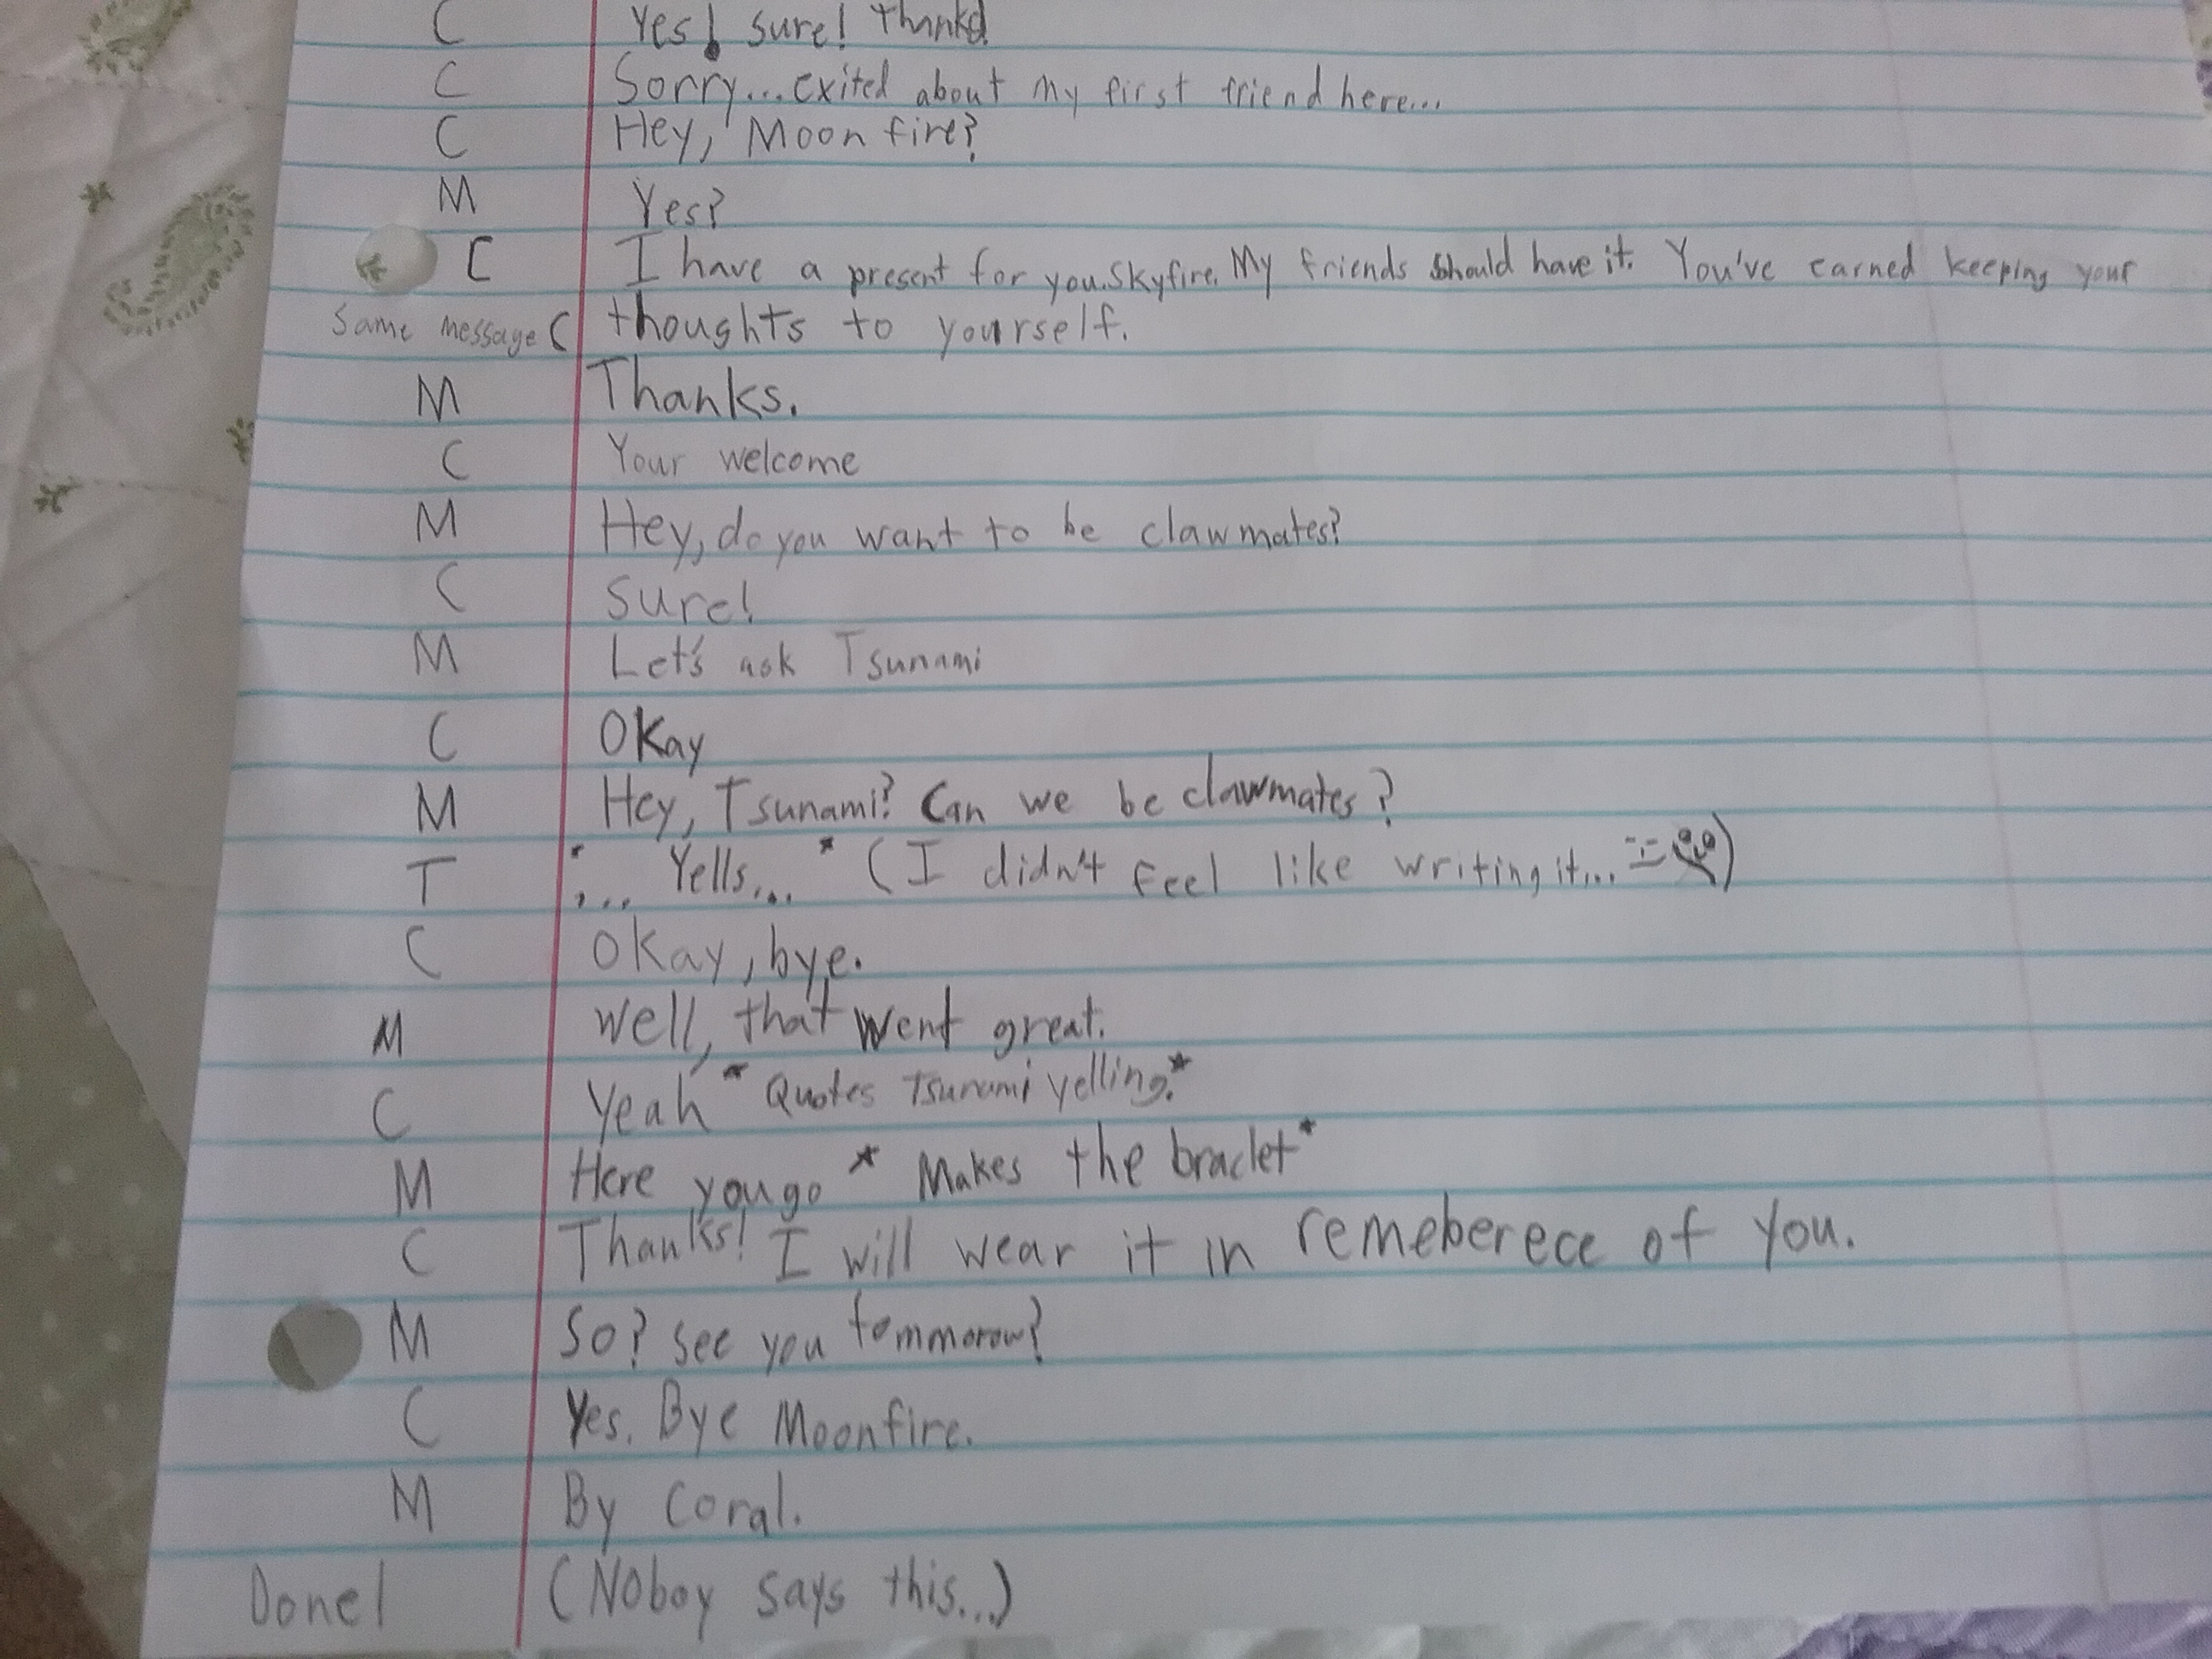 C Yes! Sure! Thanks!
C Sorry...exited about my first friend here...
C Hey, Moonfire?
M Yes?
C I have a present for you. Skyfire. My friends should have it. You've earned keeping your
Same message C thoughts to yourself.
M Thanks.
C Your welcome
M Hey, do you want to be clawmates?
C Sure!
M Let's ask Tsunami
C Okay
M Hey, Tsunami? Can we be clawmates?
T *... Yells...* (I didn't feel like writing it...)
C Okay, bye.
M Well, that went great.
C Yeah *Quotes Tsunami yelling.*
M Here you go *Makes the braclet*
C Thanks! I will wear it in remeberece of you.
M So? See you tommorow?
C Yes. Bye Moonfire.
M By Coral.
Done! (Noboy says this...)